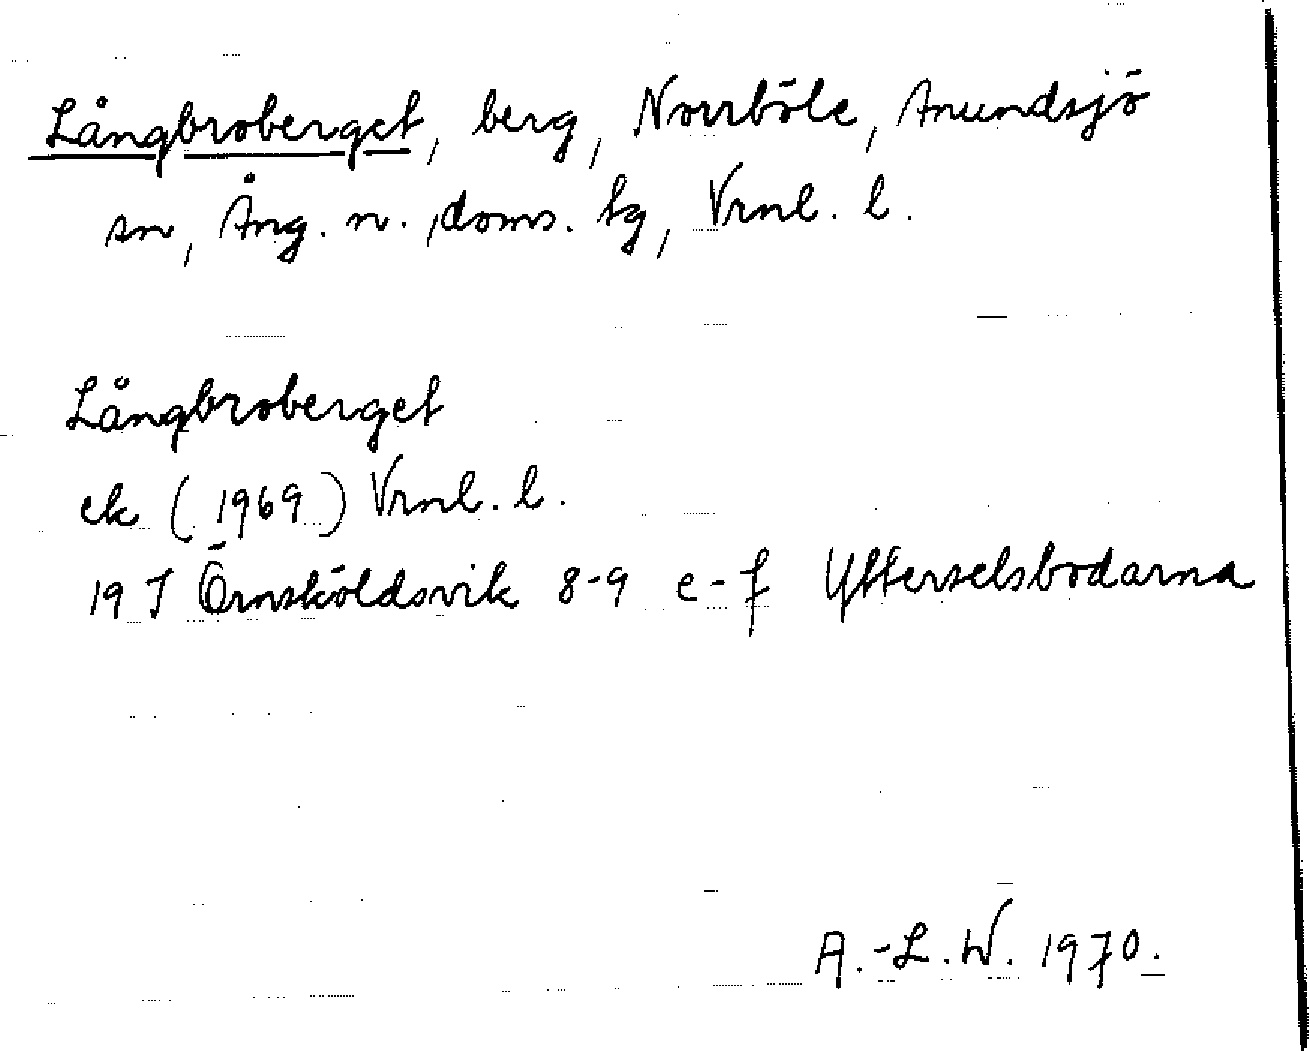 Långbroberget, berg, Norrböle, Anundsjö
sn, Ång. n. doms. tg, Vrnl. l.
Långbroberget
ek (1969) Vrnl. l.
19 J Örnsköldsvik 8-9 e-f Ytterselsbodarna
A.-L.W. 1970.